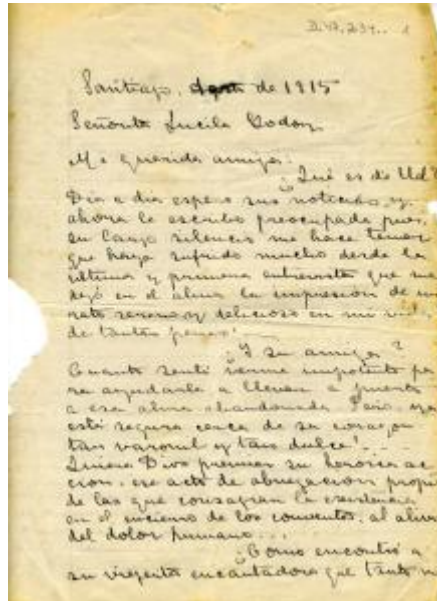 D.47.234.. 1
Santiago, de 1915
Señorita Lucila Godoy
Mi querida amiga:
¿Qué es de Ud?
Día a día espero sus noticias, y
ahora le escribo preocupada pues
su largo silencio me hace temer
que haya sufrido mucho desde la
última y primera entrevista que me
dejó en el alma la impresión de un
rato sereno y delicioso en mi vida
de tantas penas!
¿Y su amiga?
Cuanto sentí verme impotente pa
ra ayudarla a llevar a puerto
a esa alma abandonada. Pero, ya
está segura cerca de su corazón
tan varonil y tan dulce!...
Quiera Dios premiar su heroica ac
ción, ese acto de abnegación propio
de las que consagran la existencia
en el encierro de los conventos, al alivio
del dolor humano...
¿Como encontró a
su viejecita encantadora que tanto m